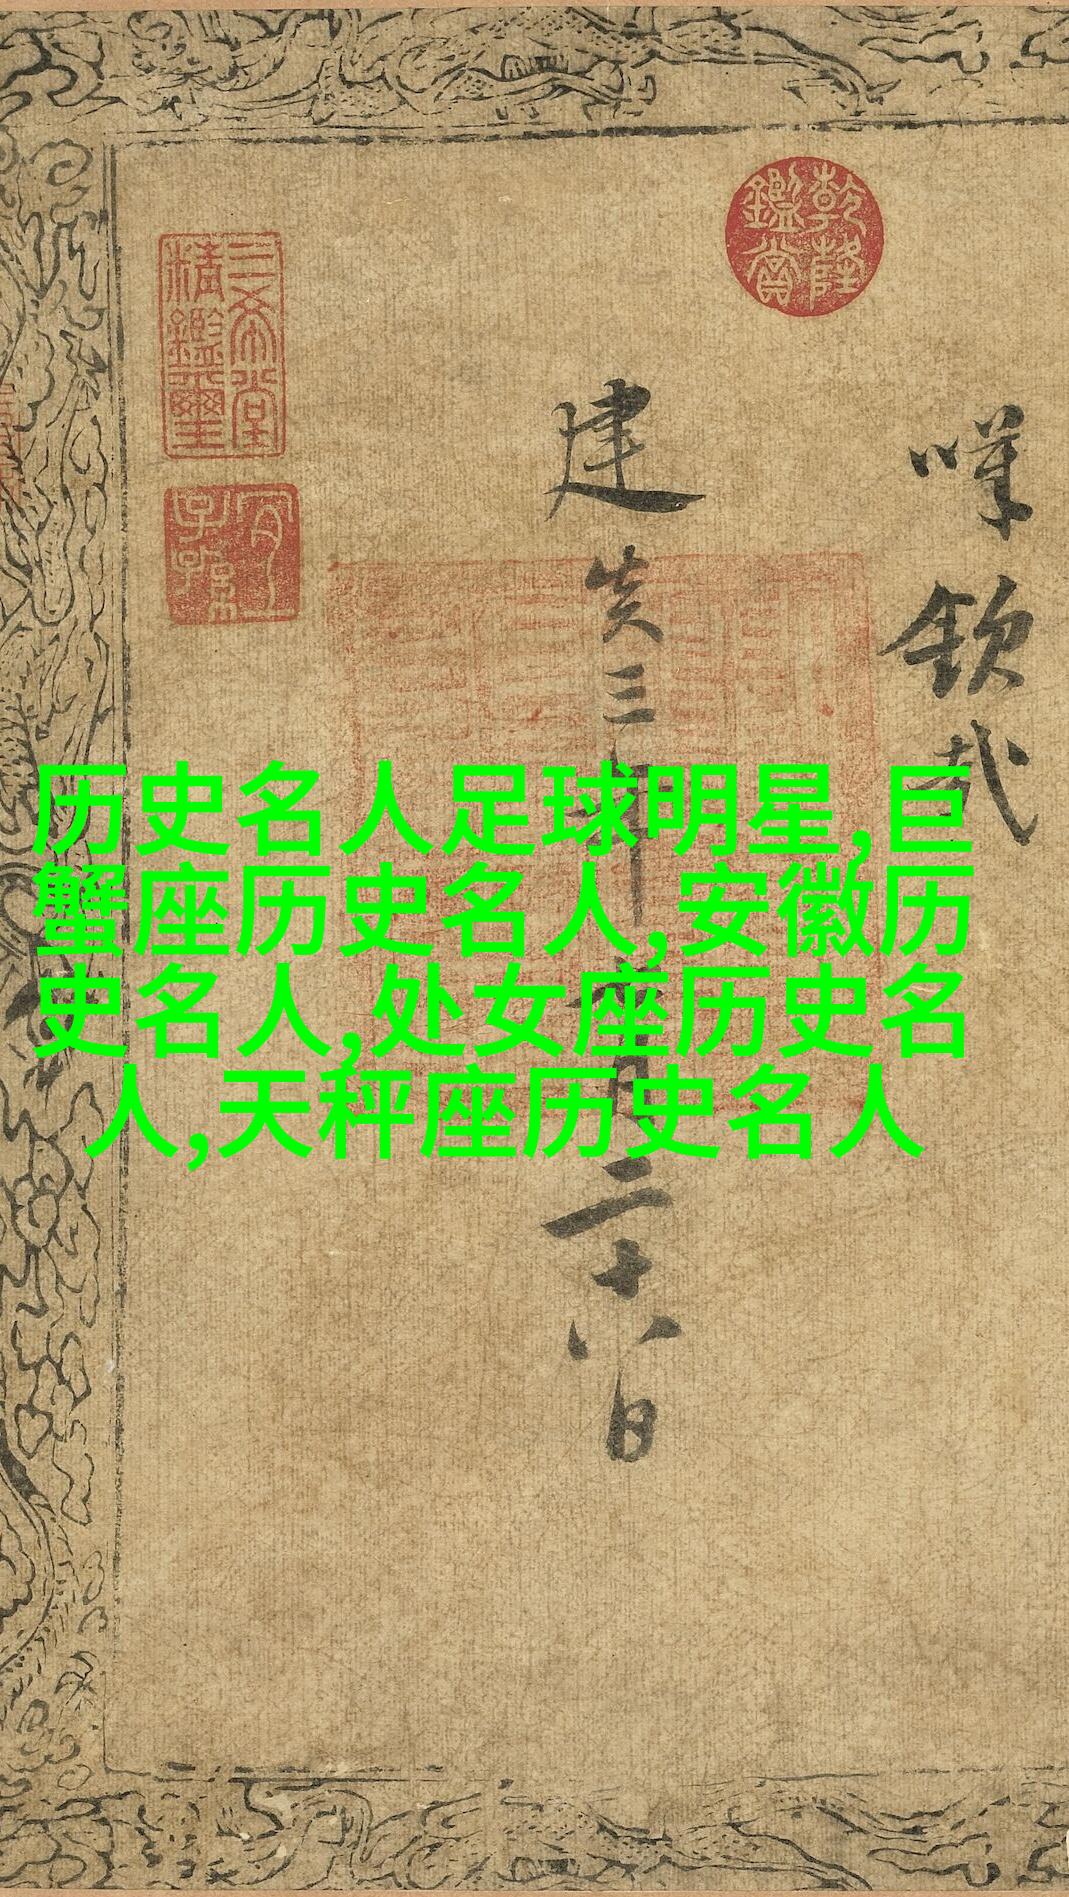 历史名人足球明星,巨
蟹座历史名人,安徽历
史名人,处女座历史名
人,天秤座历史名人
乾隆鑑賞
嘆欽哉
建炎三年
月二十八日
三希堂精鑑璽
宜子孫